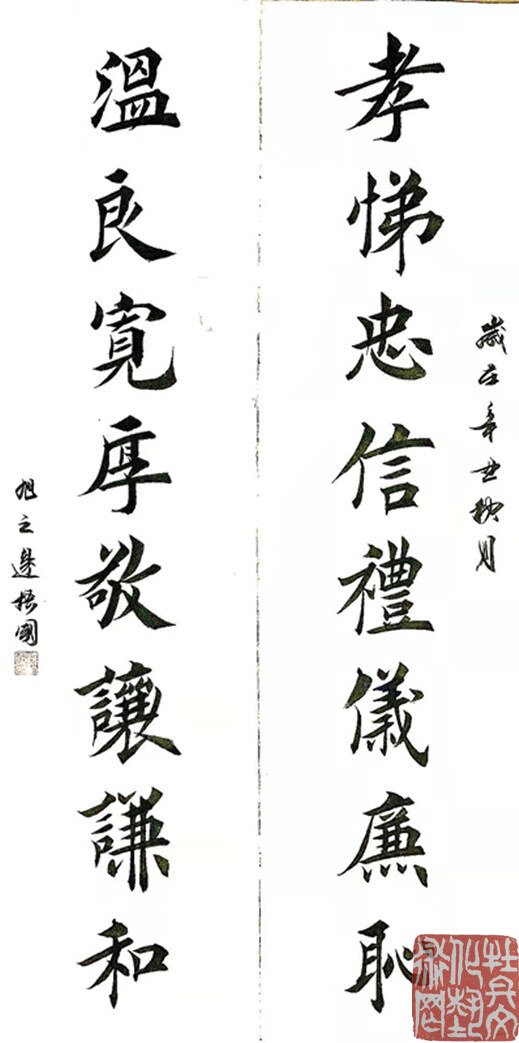 歲在辛丑秋月
孝悌忠信禮儀廉恥
溫良寬厚敬讓謙和
旭之邊振國